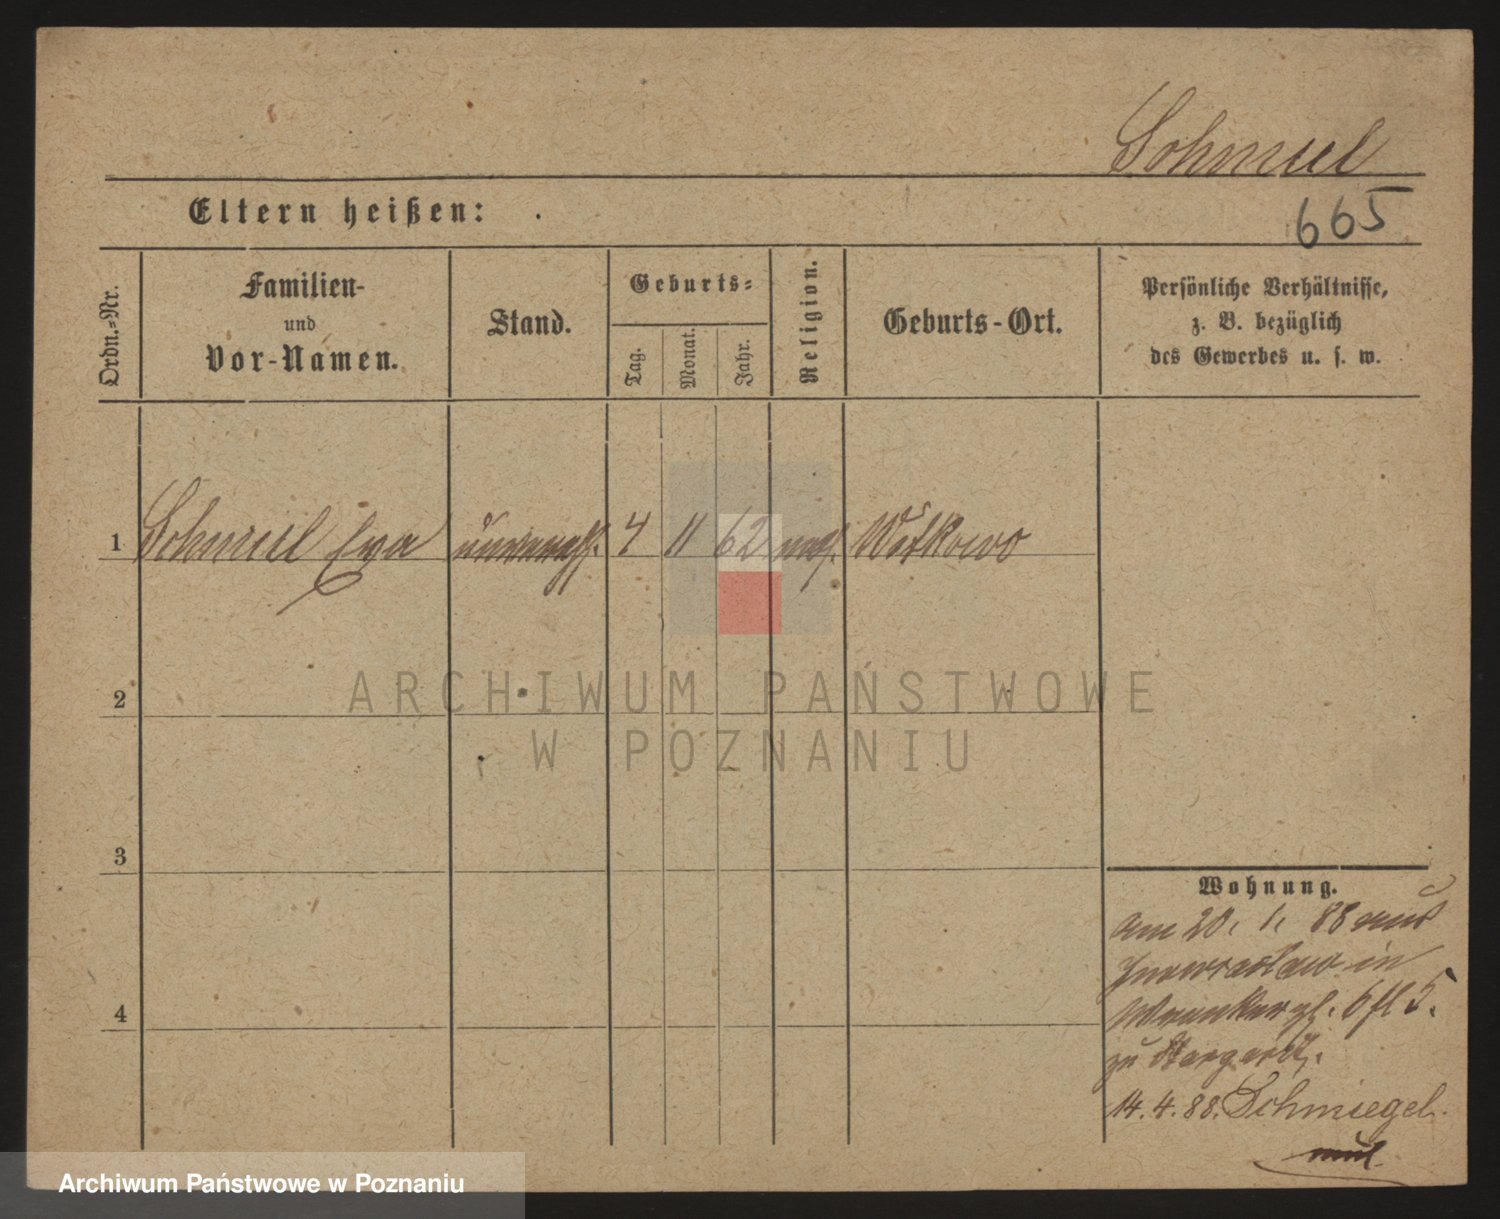 Schmul
Eltern heißen:
665
Ordn.-Nr.
Familien-
und
Vor-Namen.
Stand.
Geburts-
Tag.
Monat.
Jahr.
Religion.
Geburts-Ort.
Persönliche Verhältnisse,
z. B. bezüglich
des Gewerbes u. s. w.
1 Schmul Eva unvereh. 4 11 62 mos. Witkowo
2
3
4
Wohnung.
am 20. 1. 88 aus
Inowraclaw in
6 5.
zu
14. 4. 88. Schmiegel.
ARCHIWUM PAŃSTWOWE
W POZNANIU
Archiwum Państwowe w Poznaniu